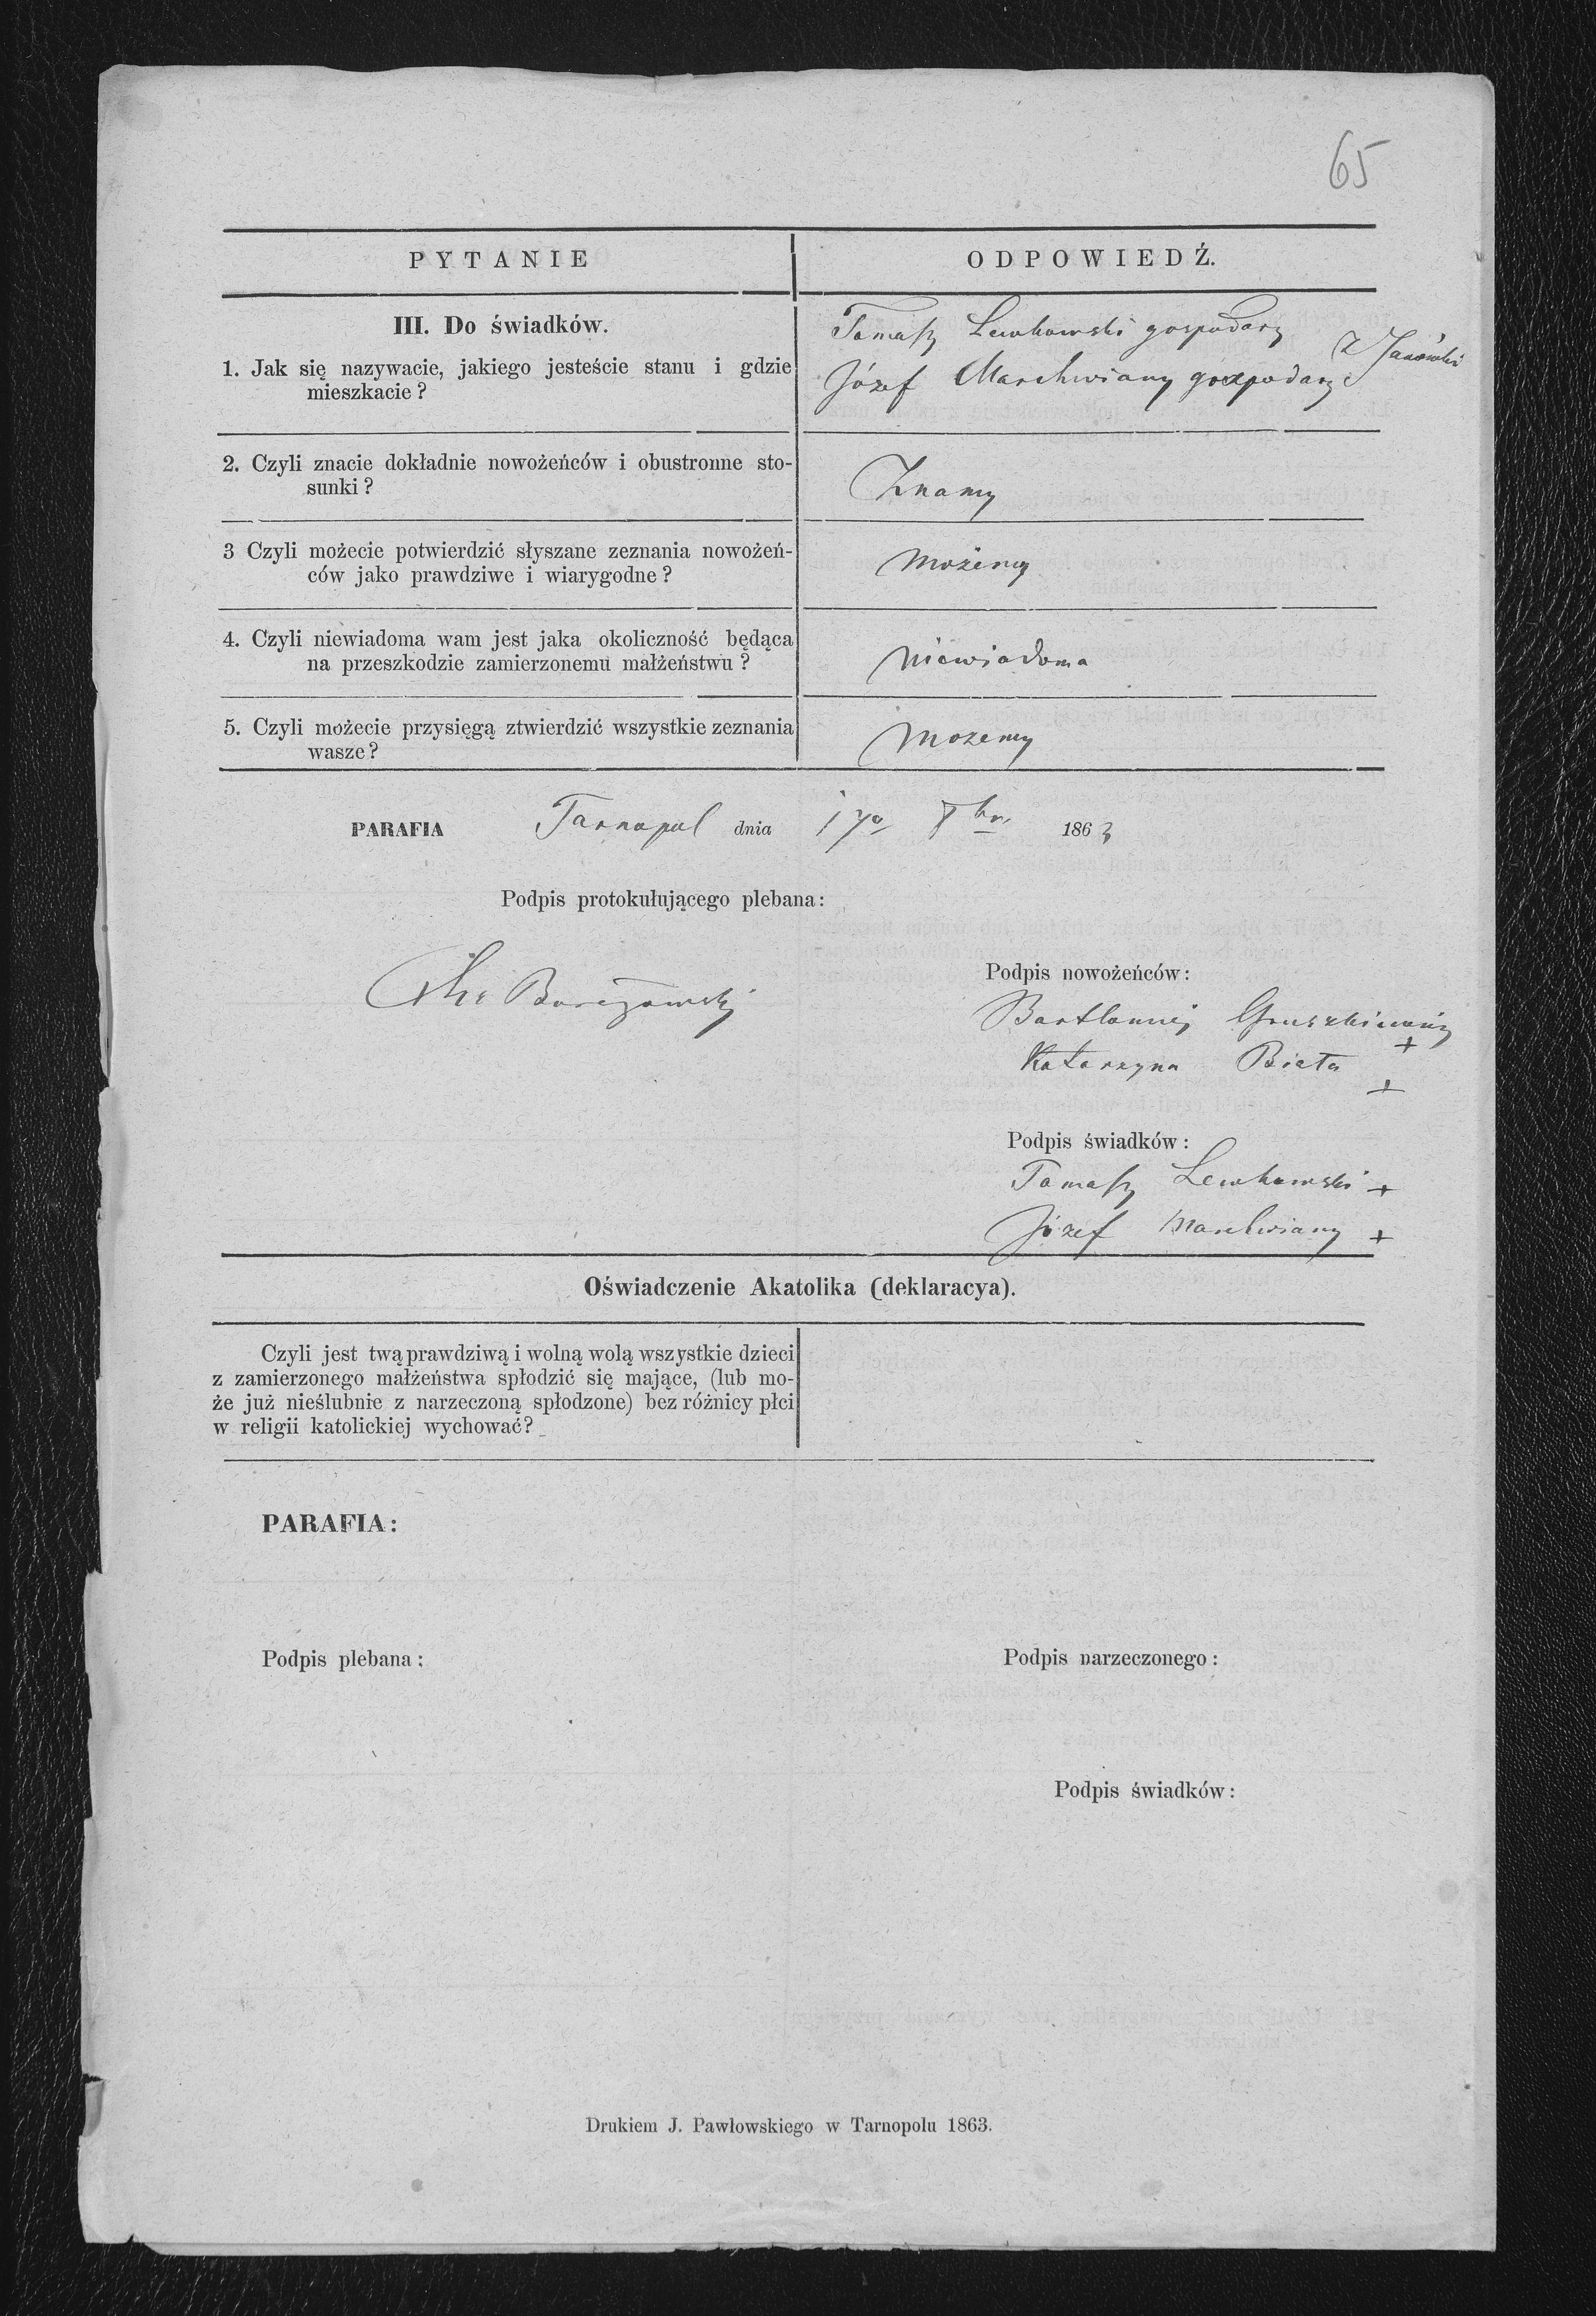 65
PYTANIE
ODPOWIEDŹ.
III. Do świadków.
1. Jak się nazywacie, jakiego jesteście stanu i gdzie
mieszkacie?
Tomasz Lewkowski gospodarz
Józef Marchwiany gospodarz
z Janówki
2. Czyli znacie dokładnie nowożeńców i obustronne sto-
sunki?
Znamy
3 Czyli możecie potwierdzić słyszane zeznania nowożeń-
ców jako prawdziwe i wiarygodne?
Możemy
4. Czyli niewiadoma wam jest jaka okoliczność będąca
na przeszkodzie zamierzonemu małżeństwu?
Niewiadoma
5. Czyli możecie przysięgą ztwierdzić wszystkie zeznania
wasze?
Mozemy
PARAFIA Tarnopol dnia 17go 8br. 1863
Podpis protokułującego plebana:
Podpis nowożeńców:
Bartłomiej
+
Katarzyna Biała
+
Podpis świadków:
Tomasz Lewkowski +
Józef Marchwiany +
Oświadczenie Akatolika (deklaracya).
Czyli jest twą prawdziwą i wolną wolą wszystkie dzieci
z zamierzonego małżeństwa spłodzić się mające, (lub mo-
że już nieślubnie z narzeczoną spłodzone) bez różnicy płci
w religii katolickiej wychować?
PARAFIA:
Podpis plebana:
Podpis narzeczonego:
Podpis świadków:
Drukiem J. Pawłowskiego w Tarnopolu 1863.